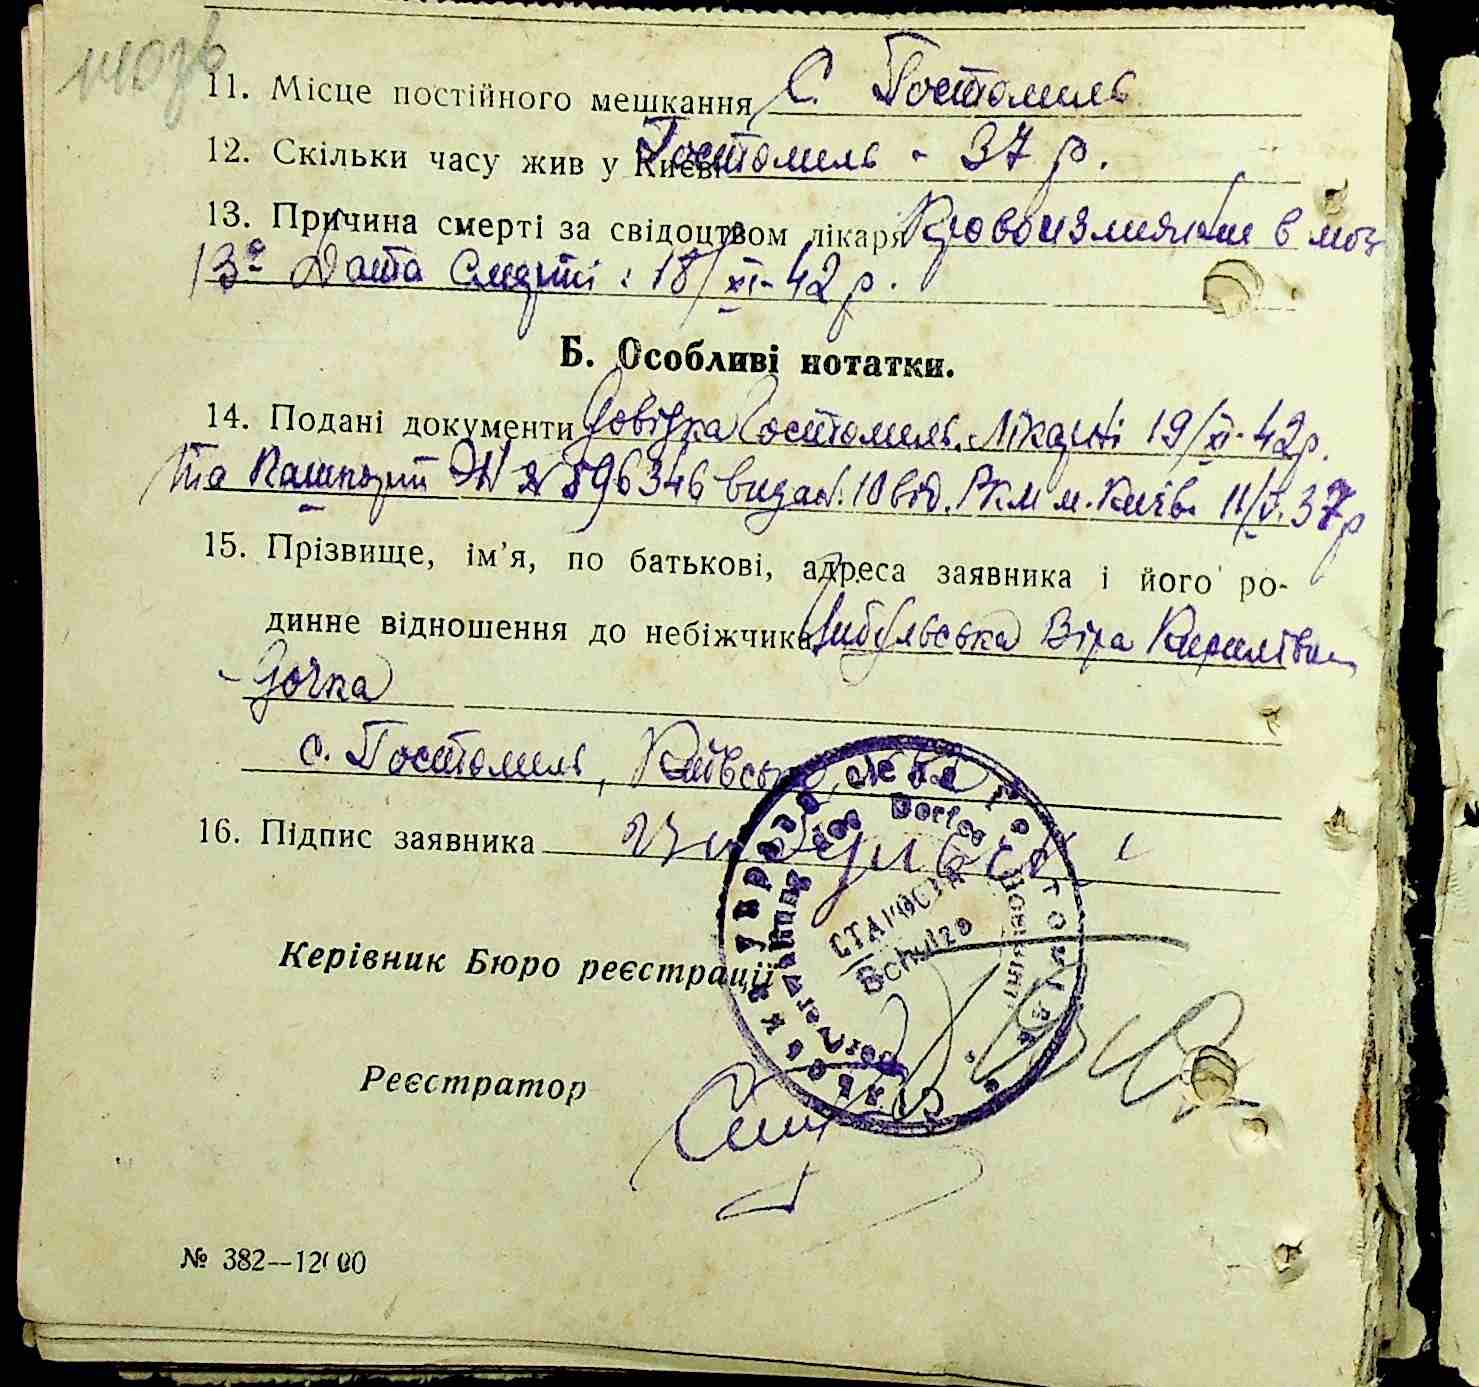 мозв
11. Місце постійного мешкання С. Гостомель
12. Скільки часу жив у Києві Гостомель - 37 р.
13. Причина смерті за свідоцтвом лікаря Кровоизлияние в моз
13а Дата Смерті: 18/XI-42 р.
Б. Особливі нотатки.
14. Подані документи Довідка Гостомель. Лікарні 19/XI-42р.
та Пашпорт № 596346 видан. 10 від. РКМ м. Київ 11/V.37р
15. Прізвище, ім'я, по батькові, адреса заявника і його ро-
динне відношення до небіжчика Цибульська Віра Кирилівна
- Дочка
с. Гостомель, Київська
16. Підпис заявника Цибульск
Сільська управа села Гостомля
Dorfverwaltung des Dorfes
СТАРОСТА
Schulze
Керівник Бюро реєстрації
Реєстратор
№ 382—12000